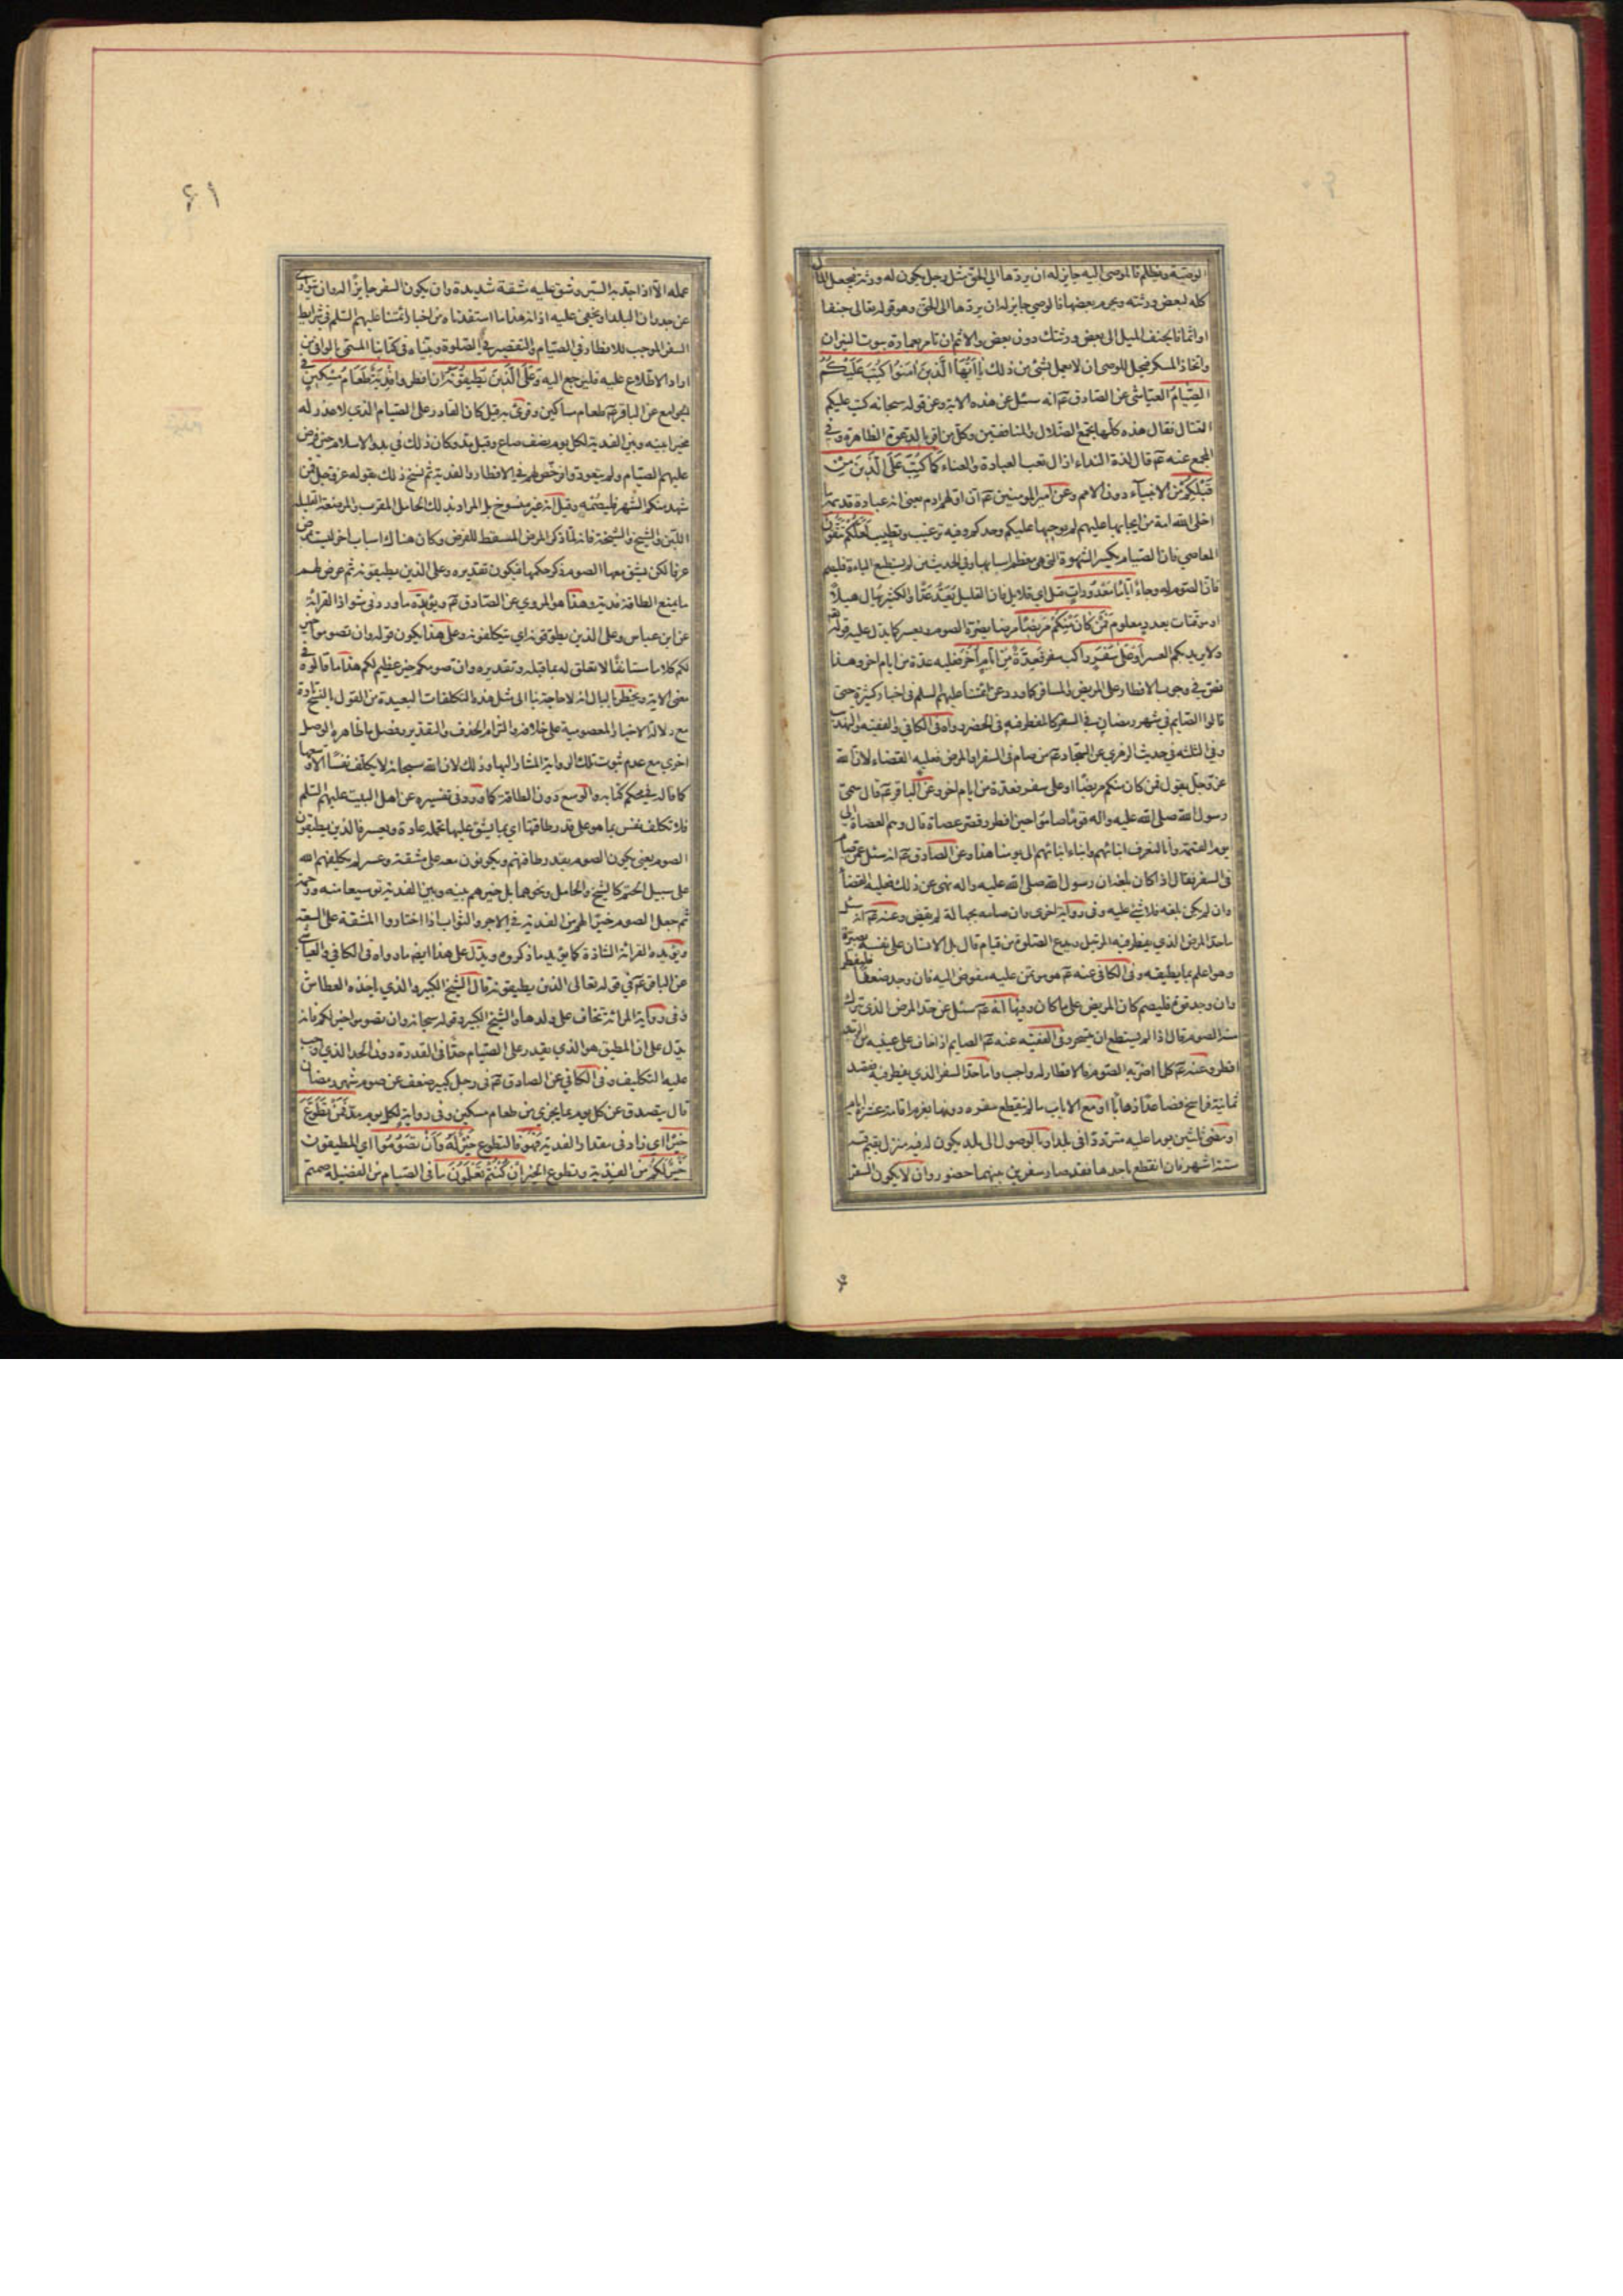 الوصية وتظلم فالموصى اليه جايز له ان يردها الى الحق مثل رجل يكون له ورثة فيجعل المال
كله لبعض ورثته ويحرم بعضها فالوصي جايز له ان يردها الى الحق وهو قوله تعالى جنفا
او اثما فالجنف الميل الى بعض ورثتك دون بعض والاثم ان تامر بعمارة بيوت النيران
واتخاذ المسكر فيحل للوصى ان لا يعمل بشئ من ذلك يا ايها الذين امنوا كتب عليكم
الصيام العياشى عن الصادق عم انه سئل عن هذه الاية وعن قوله سبحانه كتب عليكم
القتال فقال هذه كلها يجمع الضلال والمنافقين وكل من اقر بالدعوة الظاهرة وفى
المجمع عنه عم قال لذة النداء ازال تعب العبادة والعناء كما كتب على الذين من
قبلكم من الانبياء دون الامم وعن امير المومنين عم ان اولهم ادم يعنى انه عبادة قديمة ما
اخلى الله امة من ايجابها عليهم لم يوجبها عليكم وحدكم وفيه ترغيب وتطييب لعلكم تتقون
المعاصى فان الصيام يكسر الشهوة التى هى معظم اسبابها وفى الحديث من لم يستطع الباءة فليصم
فان الصوم له وجاء اياما معدودات قيل اى قلايل فان القليل يعد عدا والكثير يهال هيلا
او موقتات بعدد معلوم فمن كان منكم مريضا مرضا يضره الصوم ويعسر كما يدل عليه قوله
ولا يريد بكم العسر او على سفر راكب سفر فعدة من ايام اخر فعليه عدة من ايام اخر وهذا
نص فى وجوب الافطار على المريض والمسافر كما ورد عن ائمتنا عليهم السلم فى اخبار كثيرة حتى
قالوا الصايم فى شهر رمضان فى السفر كالمفطر فيه فى الحضر رواه فى الكافى والفقيه والتهذيب
وفى الثلثه فى حديث الزهرى عن السجاد عم من صام فى السفر او المرض فعليه القضاء لان الله
عز وجل يقول فمن كان منكم مريضا او على سفر فعدة من ايام اخر وعن الباقر عم قال سمى
رسول الله صلى الله عليه واله قوما صاموا حين افطر وقصر عصاة قال وهم العصاة الى
يوم القيمة وانا لنعرف ابنائهم وابناء ابنائهم الى يومنا هذا وعن الصادق عم انه سئل عمن صام
فى السفر فقال اذا كان بلغه ان رسول الله صلى الله عليه واله نهى عن ذلك فعليه القضا
وان لم يكن بلغه فلا شئ عليه وفى رواية اخرى وان صامه بجهالة لم يقض وعنه عم انه سئل
ما حد المرض الذى يفطر فيه الرجل ويدع الصلوة من قيام قال بل الانسان على نفسه بصيرة
وهو اعلم بما يطيقه وفى الكافى عنه عم هو موتمن عليه مفوض اليه فان وجد ضعفا فليفطر
وان وجد قوة فليصم كان المريض على ما كان وفيها انه عم سئل عن حد المرض الذى يترك
منه الصوم قال اذا لم يستطع ان يتسحر وفى الفقيه عنه عم الصايم اذا خاف على عينيه من الرمد
افطر وعنه عم كلما اضر به الصوم فالافطار له واجب واما حد السفر الذى يفطر فيه فقصد
ثمانية فراسخ فصاعدا ذهابا او مع الاياب ما لم ينقطع سفره دونها بعزم اقامة عشرة ايام
او مضى ثلثين يوما عليه مترددا فى بلد او بالوصول الى بلد يكون له فيه منزل يقيم فيه
ستة اشهر فان انقطع باحدها فقد صار سفرين بينهما حضور وان لا يكون السفر
۶۱
عمله الا اذا جد به السير وشق عليه مشقة شديدة وان يكون السفر جايزا له وان يتوارى
عن جدران البلد او يخفى عليه اذانه هذا ما استفدناه من اخبار ائمتنا عليهم السلم فى شرايط
السفر الموجب للافطار فى الصيام والتقصير فى الصلوة وبيناه فى كتابنا المسمى بالوافى من
اراد الاطلاع عليه فليرجع اليه وعلى الذين يطيقونه ان افطروا فدية طعام مسكين فى
الجوامع عن الباقر عم طعام مساكين وقرئ به قيل كان القادر على الصيام الذى لا عذر له
مخيرا بينه وبين الفدية لكل يوم نصف صاع وقيل مد وكان ذلك فى بدو الاسلام حين فرض
عليهم الصيام ولم يتعودوا فرخص لهم فى الافطار والفدية ثم نسخ ذلك بقوله عز وجل فمن
شهد منكم الشهر فليصمه وقيل انه غير منسوخ بل المراد بذلك الحامل المقرب والمرضعة القليلة
اللبن والشيخ والشيخة فانه لما ذكر المرض المسقط للفرض وكان هناك اسباب اخر ليست بمرض
عرفا لكن يشق معها الصوم ذكر حكمها فيكون تقديره وعلى الذين يطيقونه ثم عرض لهم
ما يمنع الطاقة فدية وهذا هو المروي عن الصادق عم ويؤيده ما ورد فى شواذ القرائة
عن ابن عباس وعلى الذين يطوقونه اى يتكلفونه وعلى هذا يكون قوله وان تصوموا خير
لكم كلاما مستانفا لا تعلق له بما قبله وتقديره وان صومكم خير عظيم لكم هذا ما قالوه فى
معنى الاية ويخطر بالبال انه لا حاجة بنا الى مثل هذه التكلفات البعيدة من القول بالنسخ تارة
مع دلالة الاخبار المعصومية على خلافه والتزام الحذف والتقدير وفصل ما ظاهره الوصل
اخرى مع عدم ثبوت تلك الرواية المشار اليها وذلك لان الله سبحانه لا يكلف نفسا الا وسعها
كما قاله فى محكم كتابه والوسع دون الطاقة كما ورد فى تفسيره عن اهل البيت عليهم السلم
فلا تكلف نفس بما هو على قدر طاقتها اى بما يشق عليها تحمله عادة ويعسر فالذين يطيقون
الصوم يعنى يكون الصوم بقدر طاقتهم ويكونون معه على مشقة وعسر لم يكلفهم الله
على سبيل الحتم كالشيخ والحامل ونحوهما بل خيرهم بينه وبين الفدية توسيعا منه ورحمة
ثم جعل الصوم خيرا لهم من الفدية فى الاجر والثواب اذا اختاروا المشقة على السعة
ويؤيده القرائة الشاذة كما يؤيد ما ذكروه ويدل على هذا ايضا ما رواه فى الكافى والعياشى
عن الباقر عم فى قوله تعالى الذين يطيقونه قال الشيخ الكبير والذى ياخذه العطاش
وفى رواية المرائة تخاف على ولدها والشيخ الكبير وقوله سبحانه وان تصوموا خير لكم فانه
يدل على ان المطيق هو الذى يقدر على الصيام حدا فى القدرة دون الحد الذى اوجب
عليه التكليف وفى الكافى عن الصادق عم فى رجل كبير ضعف عن صوم شهر رمضان
قال يتصدق عن كل يوم بما يجزى من طعام مسكين وفى رواية لكل يوم مد فمن تطوع
خيرا اى زاد فى مقدار الفدية فهو فالتطوع خير له وان تصوموا اى المطيقون
خير لكم من الفدية وتطوع الخير ان كنتم تعلمون ما فى الصيام من الفضيلة صمتم